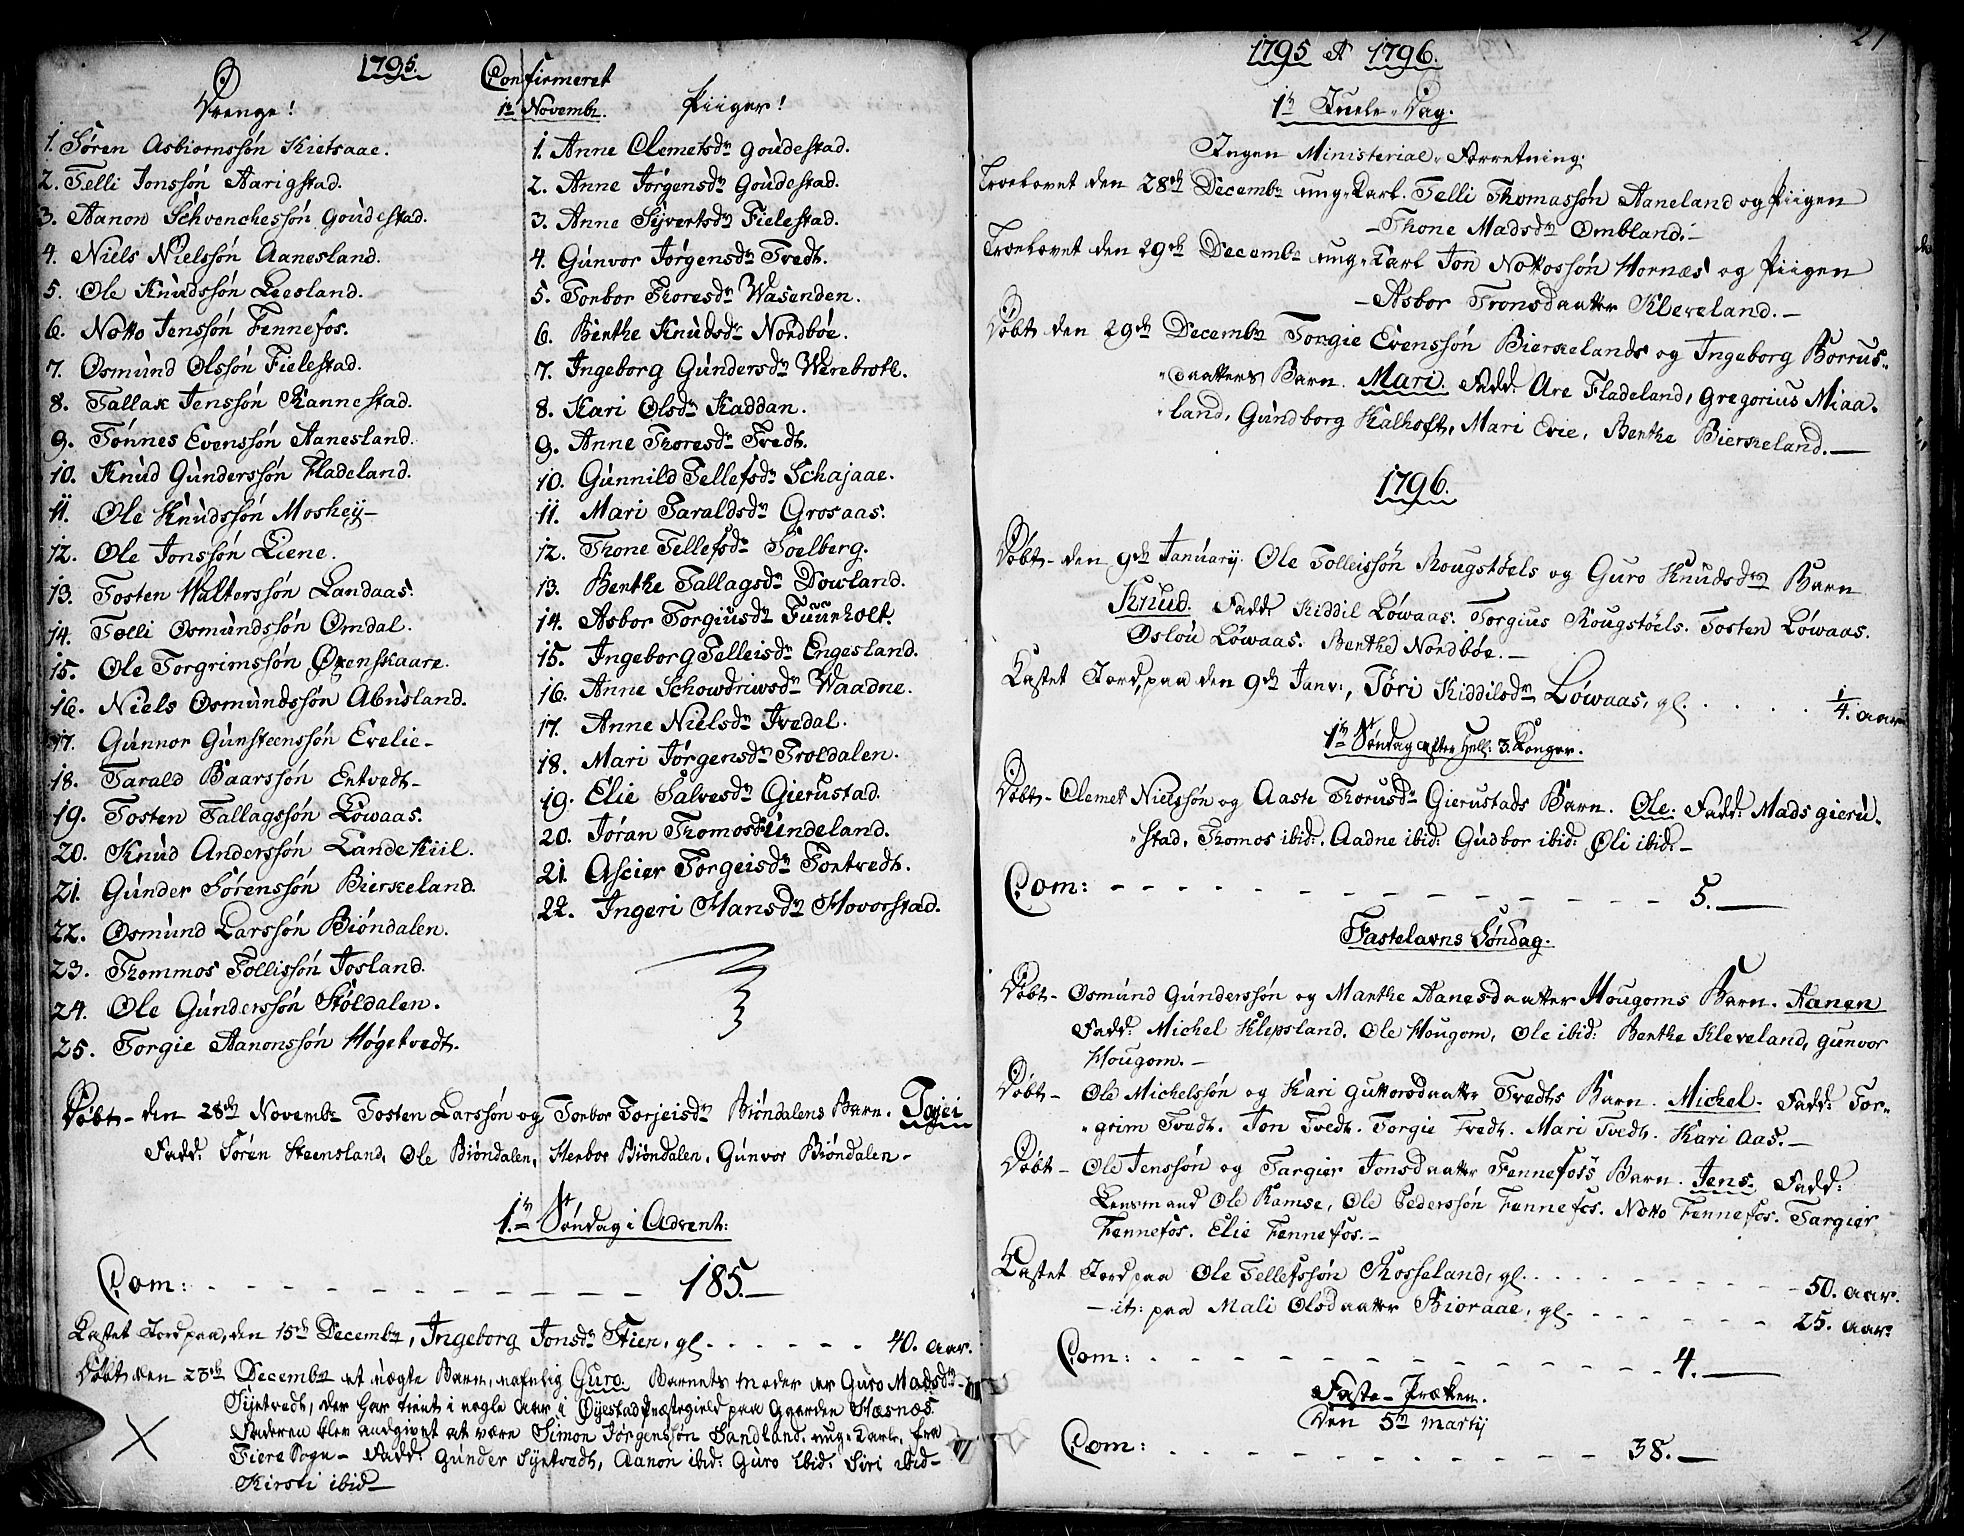 1795. Confirmeret
1te Novembr.
Drenge!
1. Søren Asbiornssøn Kietsaae.
2. Telli Jonssøn Aarigstad.
3. Aanon Schvenchessøn Goudestad.
4. Niels Nielssøn Aanesland.
5. Ole Knudssøn Leesland.
6. Notto Jenssøn Fennefos.
7. Osmund Olssøn Fielestad.
8. Tallak Jenssøn Rannestad.
9. Tønnes Evenssøn Aanesland.
10. Knud Gunderssøn Fladeland.
11. Ole Knudssøn Moshej
12. Ole Jonssøn Liene.
13. Tosten Walterssøn Landaas.
14. Tælli Osmundssøn Omdal.
15. Ole Torgrimssøn Øxenskaare.
16. Niels Osmundssøn Abusland.
17. Gunnor Gunsteenssøn Evelie
18. Tarald Baarssøn Entvedt
19. Tosten Tallagssøn Løwaas.
20. Knud Anderssøn Landekiil.
21. Gunder Sørenssøn Bierkeland.
22. Osmund Larssøn Biøndalen.
23. Thommos Tollissøn Josland.
24. Ole Gunderssøn Støldalen.
25. Torgie Aanonssøn Høgetvedt.
Piiger!
1. Anne Clemetsdr Goudestad.
2. Anne Jørgensdr Goudestad.
3. Anne Sijvertsdr Fielestad.
4. Gunvor Jørgensdr Tvedt.
5. Torbor Thoresdr Wasenden.
6. Berthe Knudsdr Nordbøe.
7. Ingeborg Gundersdr Werebrotl.
8. Kari Olsdr Kaddan.
9. Anne Thoresdr Tvedt.
10. Gunnild Tellefsdr Schajaae.
11. Mari Taraldsdr Grosaas.
12. Thone Tellefsdr Soelberg.
13. Berthe Tallagsdr Dowland.
14. Asbor Torgiusdr Fuurholt.
15. Ingeborg Telleisdr Engesland.
16. Anne Schowdriwsdr Waadne.
17. Anne Nielsdr Ivedal.
18. Mari Jørgensdr Troldalen.
19. Elie Salvesdr Gierustad.
20. Jøran Thomosdr Undeland.
21. Ascier Torgeisdr Tortvedt.
22. Ingeri Hansdr Hovorstad.
Døbt den 28de Novembr Tosten Larssøn og Torbor Torjeisdr Biøndalens Barn. Tojei
Fadd. Søren Steensland, Ole Biøndalen, Herbor Biøndalen. Gunvor Biøndalen
1te Søndag i Advent:
Com: 185.
Kastet Jord paa, den 15de Decembr, Ingeborg Jonsdr Stien, gl. 40. aar.
Døbt den 28de Decembr et uægte Barn, nafnlig Guro. Barnets Moder er Guro Madsdr
Sijetvedt, der har tient i nogle aar i Øijestad Præstegield paa Gaarden Næsnæs.
Faderen blev angivet at være Simon Jørgenssøn Sandland. ung-Karl. fra
Fiere Sogn Fadd. Gunder Sijetvedt, Aanon ibid. Guro ibid. Siri ibid
Kirsti ibid
1795 et 1796.
1te Juele-Dag.
Ingen Ministerial-Forretning.
Troelovet den 28de Decembr ung-Karl. Telli Thomassøn Aaneland og Piigen
Thone Madsdr Ombland.
Troelovet den 29de Decembr ung-Karl Jon Nottossøn Hornæs og Piigen
Asbor Tronsdaatter Kleveland.
Døbt den 29de Decembr Torgie Evenssøn Bierkelands og Ingeborg Borrus-
daatters Barn. Mari. Fadd. Are Fladeland, Gregorius Miaa-
land, Gundborg Kalhoft, Mari Evie, Berthe Bierkeland.
1796.
Døbt den 9de Januarij. Ole Tolleissøn Rougstøels og Guro Knudsdrs Barn
Knud. Fadd. Kiddil Løwaas. Torgius Rougstøels. Tosten Løwaas.
Oslou Løwaas. Berthe Nordbøe.
Kastet Jord, paa den 9de Janv:, Tøri Kiddilsdr Løwaas, gl. 1/4. aar
1te Søndag efter Hell: 3. Konger.
Døbt Clemet Nielssøn og Aaste Thorusdr Gierustads Barn. Ole. Fadd. Mads gieru-
stad. Thomos ibid. Aadne ibid: Gudbor ibid: Øli ibid.
Com: 5.
Fastelavns Søndag.
Døbt Osmund Gunderssøn og Marthe Aanesdaatter Hougoms Barn. Aanen
Fadd. Michel Klepsland. Ole Hougom, Ole ibid: Berthe Kleveland, Gunvor
Hougom.
Døbt Ole Michelssøn og Kari Guttorsdaatter Tvedts Barn. Michel. Fadd: Tor-
grim Tvedt. Jon Tvedt. Torgie Tvedt. Mari Tvedt. Kari Aas.
Døbt Ole Jenssøn og Targier Jonsdaatter Fennefoss Barn. Jens. Fadd:
Lensmand Ole Ramse, Ole Pederssøn Fennefos. Notto Fennefos. Targier
Fennefos. Elie Fennefos.
Kastet Jord paa Ole Tellefssøn Rosseland, gl. 50. aar.
it: paa Mali Olsdaatter Bioraae, gl. 25. aar
Com: 4.
Faste-Præken.
Den 5te Martij
Com: 38.